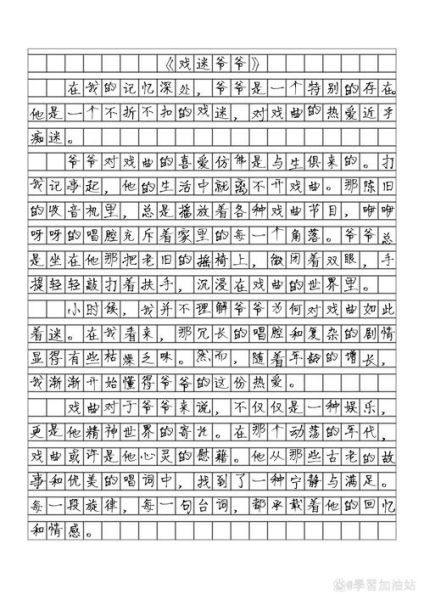 《戏迷爷爷》
在我的记忆深处，爷爷是一个特别的存在。
他是一个不折不扣的戏迷，对戏曲的热爱近乎
痴迷。
爷爷对戏曲的喜爱仿佛是与生俱来的。打
我记事起，他的生活中就离不开戏曲。那陈旧
的收音机里，总是播放着各种戏曲节目，咿咿
呀呀的唱腔充斥着家里的每一个角落。爷爷总
是坐在他那把老旧的摇椅上，微闭着双眼，手
指轻轻敲打着扶手，沉浸在戏曲的世界里。
小时候，我并不理解爷爷为何对戏曲如此
着迷。在我看来，那冗长的唱腔和复杂的剧情
显得有些枯燥乏味。然而，随着年龄的增长，
我渐渐开始懂得爷爷的这份热爱。
戏曲对于爷爷来说，不仅仅是一种娱乐，
更是他精神世界的寄托。在那个动荡的年代，
戏曲或许是他心灵的慰藉。他从那些古老的故
事和优美的唱词中，找到了一种宁静与满足。
每一段旋律，每一句台词，都承载着他的回忆
和情感。
@學習加油站